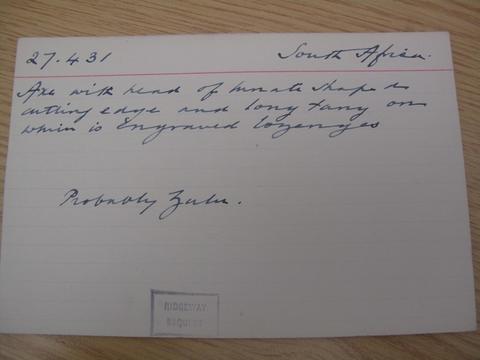 27.4.31 South Africa.
Axe with head of lunate shape &
cutting edge and long tang on
which is Engraved lozenges
Probably Zulu.
RIDGEWAY
BEQUEST